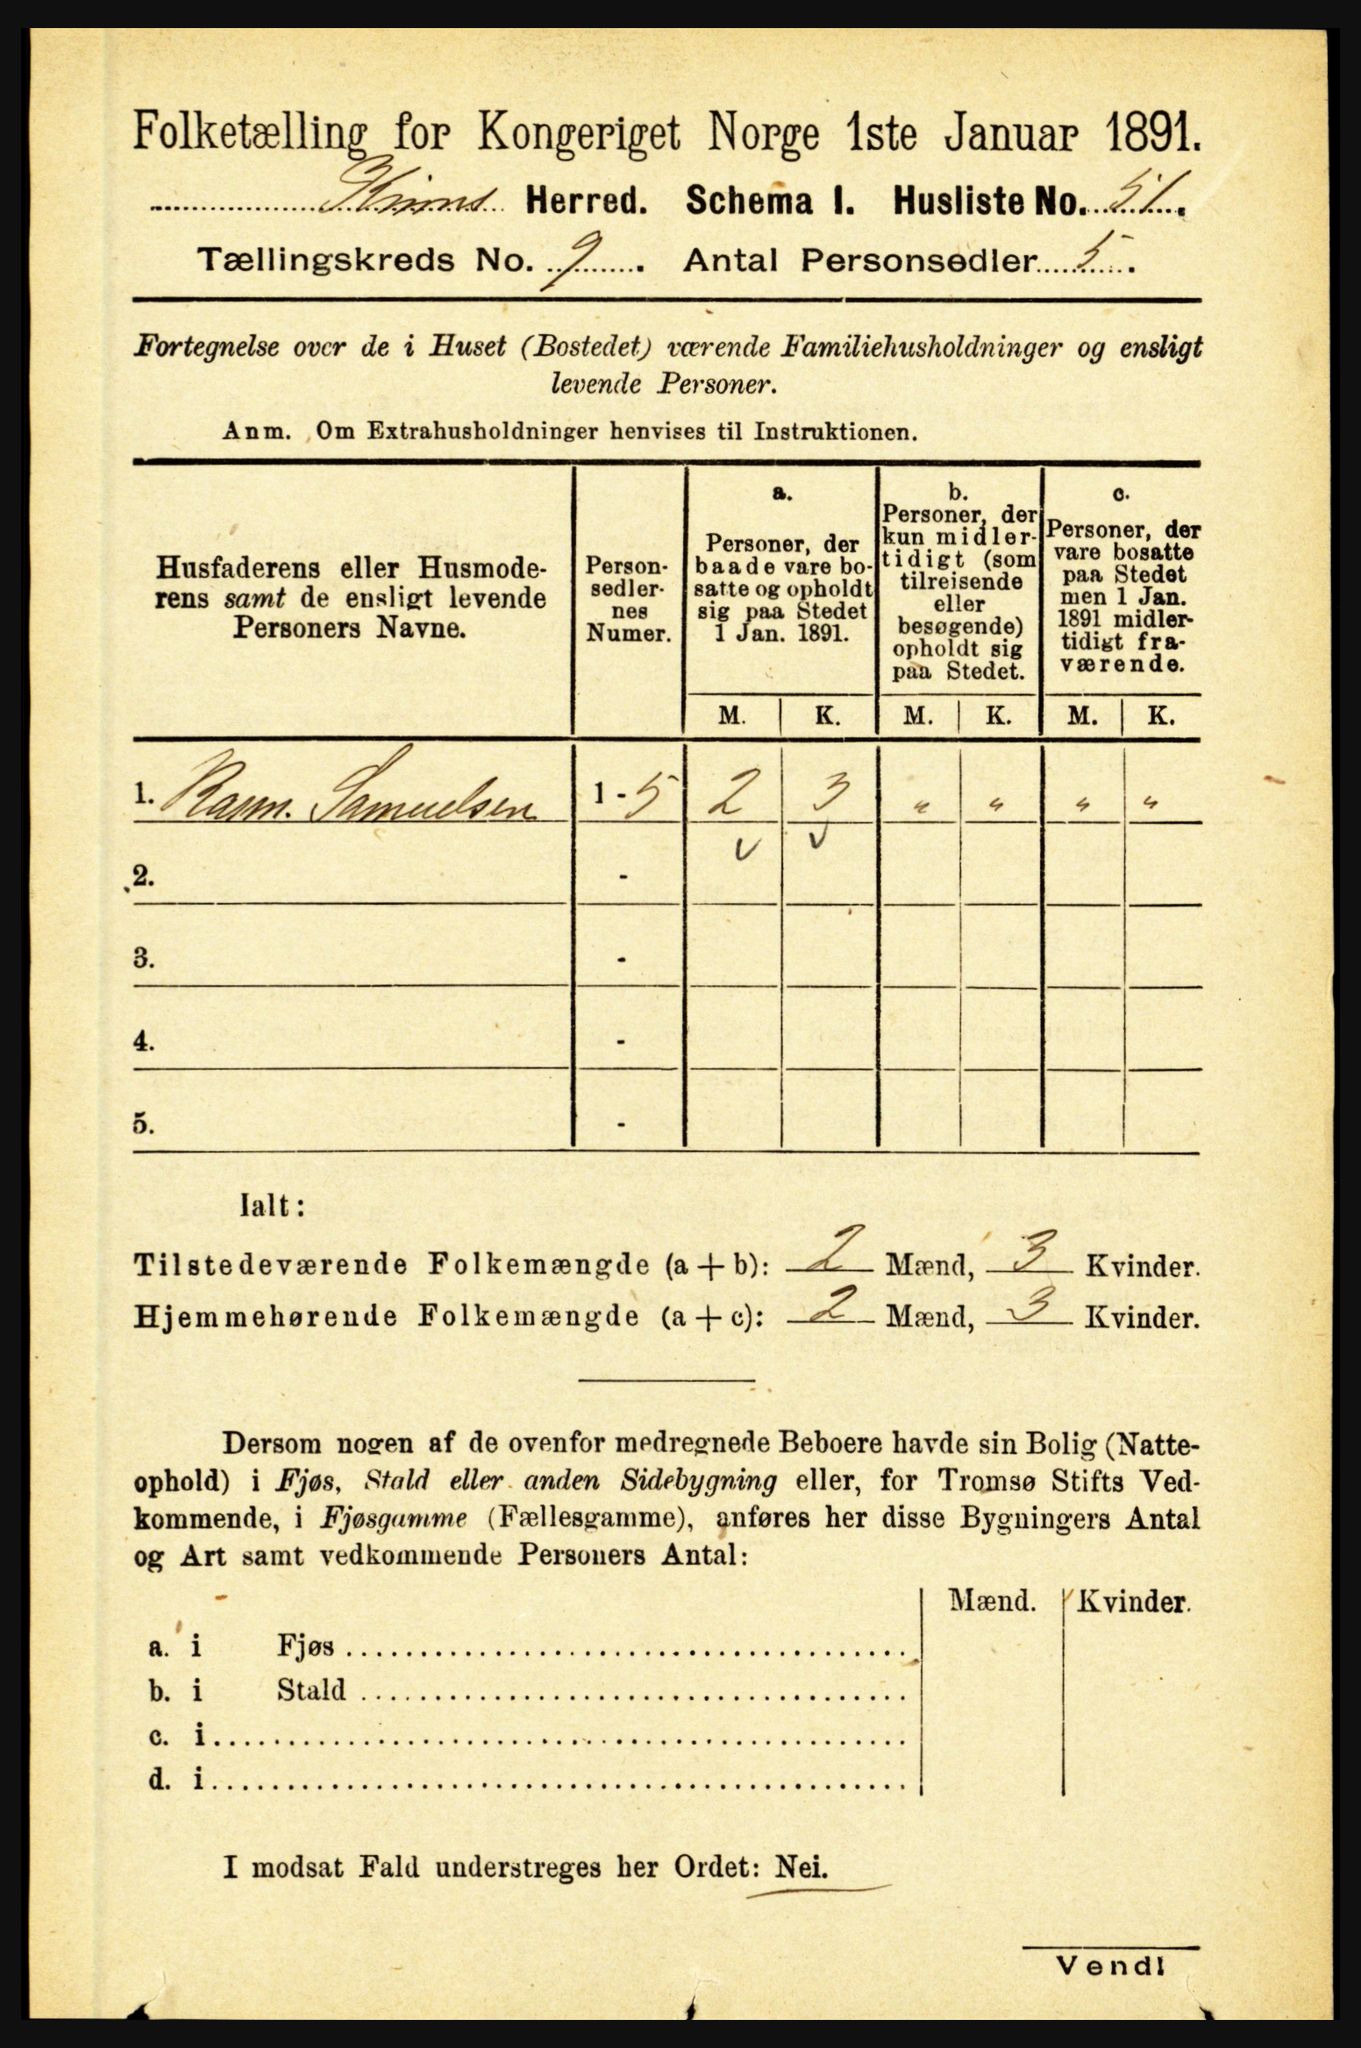 Folketælling for Kongeriget Norge 1ste Januar 1891.
Kinns Herred. Schema I. Husliste No. 51.
Tællingskreds No. 9. Antal Personsedler 5.
Fortegnelse over de i Huset (Bostedet) værende Familiehusholdninger og ensligt
levende Personer.
Anm. Om Extrahusholdninger henvises til Instruktionen.
Husfaderens eller Husmode-
rens samt de ensligt levende
Personers Navne.
Person-
sedler-
nes
Numer.
a.
Personer, der
baade vare bo-
satte og opholdt
sig paa Stedet
1 Jan. 1891.
b.
Personer, der
kun midler-
tidigt (som
tilreisende
eller
besøgende)
opholdt sig
paa Stedet.
c.
Personer, der
vare bosatte
paa Stedet
men 1 Jan.
1891 midler-
tidigt fra-
værende.
M. K. M. K. M. K.
1. Rasm. Samuelsen 1 - 5 2 3 " " " "
2. -
3. -
4. -
5. -
Ialt:
Tilstedeværende Folkemængde (a + b): 2 Mænd, 3 Kvinder.
Hjemmehørende Folkemængde (a + c): 2 Mænd, 3 Kvinder.
Dersom nogen af de ovenfor medregnede Beboere havde sin Bolig (Natte-
ophold) i Fjøs, Stald eller anden Sidebygning eller, for Tromsø Stifts Ved-
kommende, i Fjøsgamme (Fællesgamme), anføres her disse Bygningers Antal
og Art samt vedkommende Personers Antal:
Mænd. Kvinder.
a. i Fjøs
b. i Stald
c. i
d. i
I modsat Fald understreges her Ordet: Nei.
Vend!